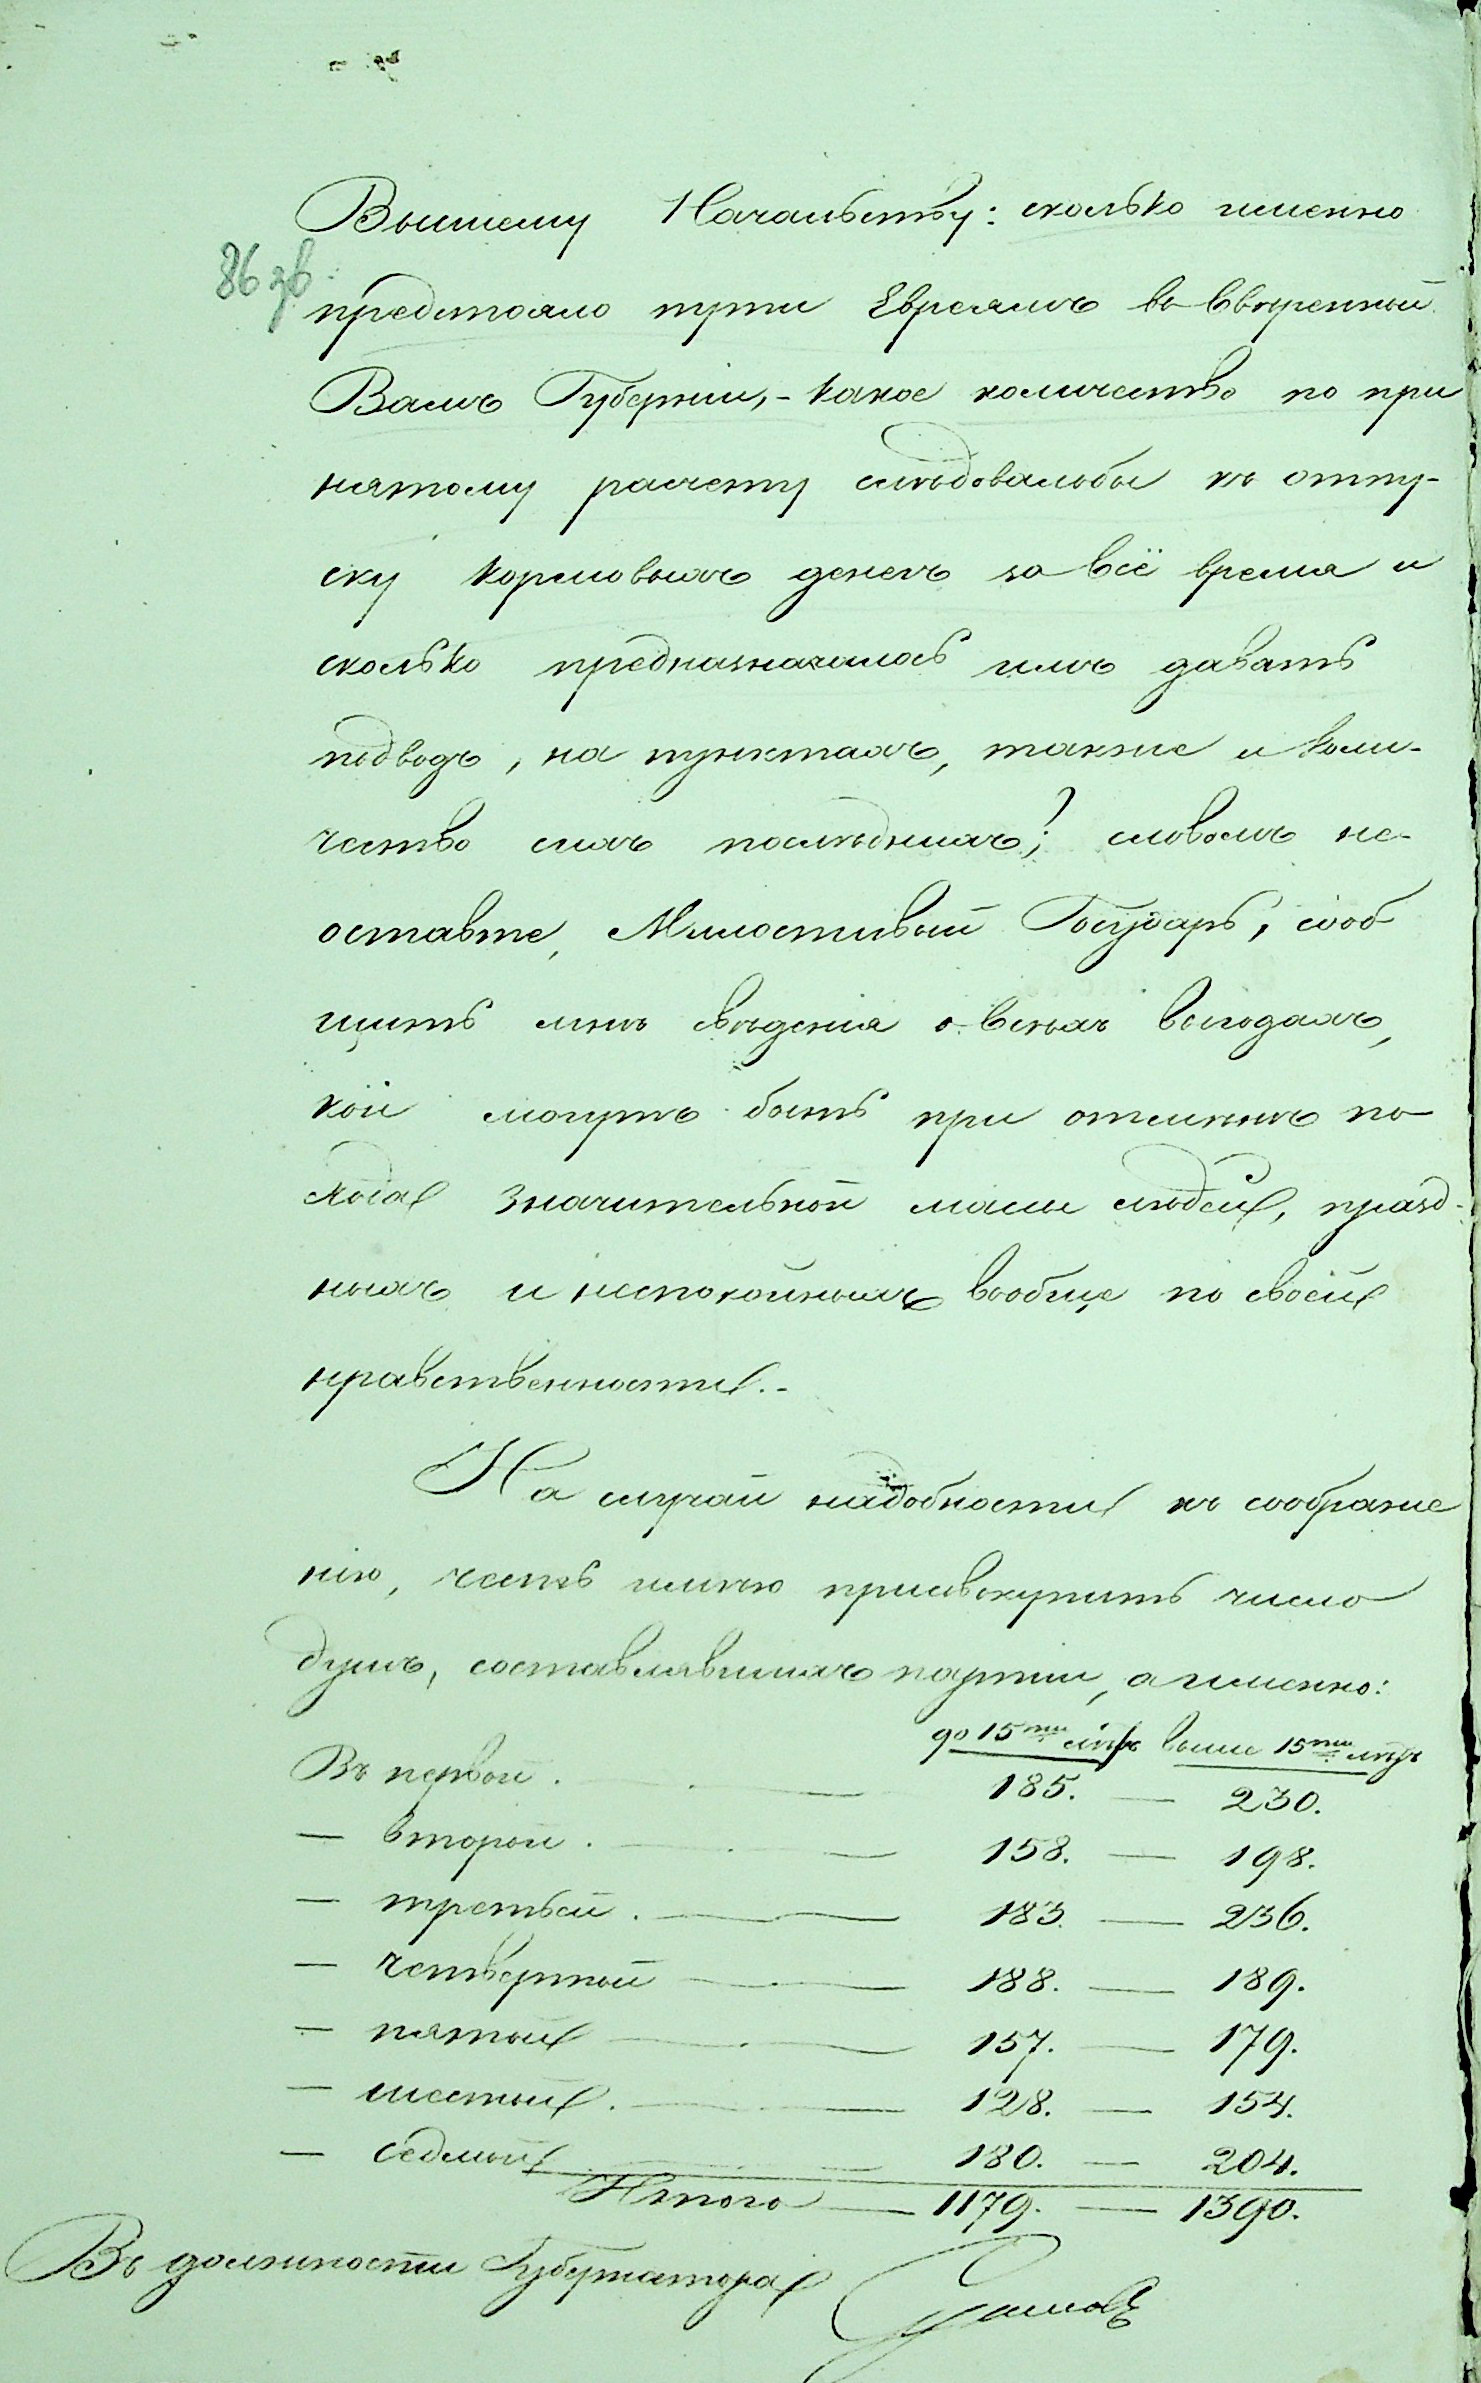 Вышнему Начальству: сколько именно
86 зв
предстояло пути Евреямъ во ввѣренной
Вамъ Губерніи, - какое количество по при
нятому расчету слѣдовалобы къ отпу-
ску кормовыхъ денегъ за всё время и
сколько предназначалось имъ давать
подводъ, на пунктахъ, также и коли-
чество сихъ послѣднихъ?; словомъ не-
оставте, Милостивый Государь, сооб
щить мнѣ свѣденія о всѣхъ выгодахъ,
кои могутъ быть при отмѣнѣ по
хода значительной массы людей, празд-
ныхъ и неспокойныхъ вообще по своей
нравственности.-
На случай надобности къ соображе
нію, честь имѣю присовкупить число
душъ, составлявшихъ партіи, а именно:
до 15ти лѣтъ выше 15ти лѣтъ
Въ первой . — 185. — 230.
— второй . — 158. — 198.
— третьей . — 183. — 236.
— четвертой — 188. — 189.
— пятой — 157. — 179.
— шестой . — 128. — 154.
— седмой — 180. — 204.
Итого — 1179. — 1390.
Въ должности Губернатора